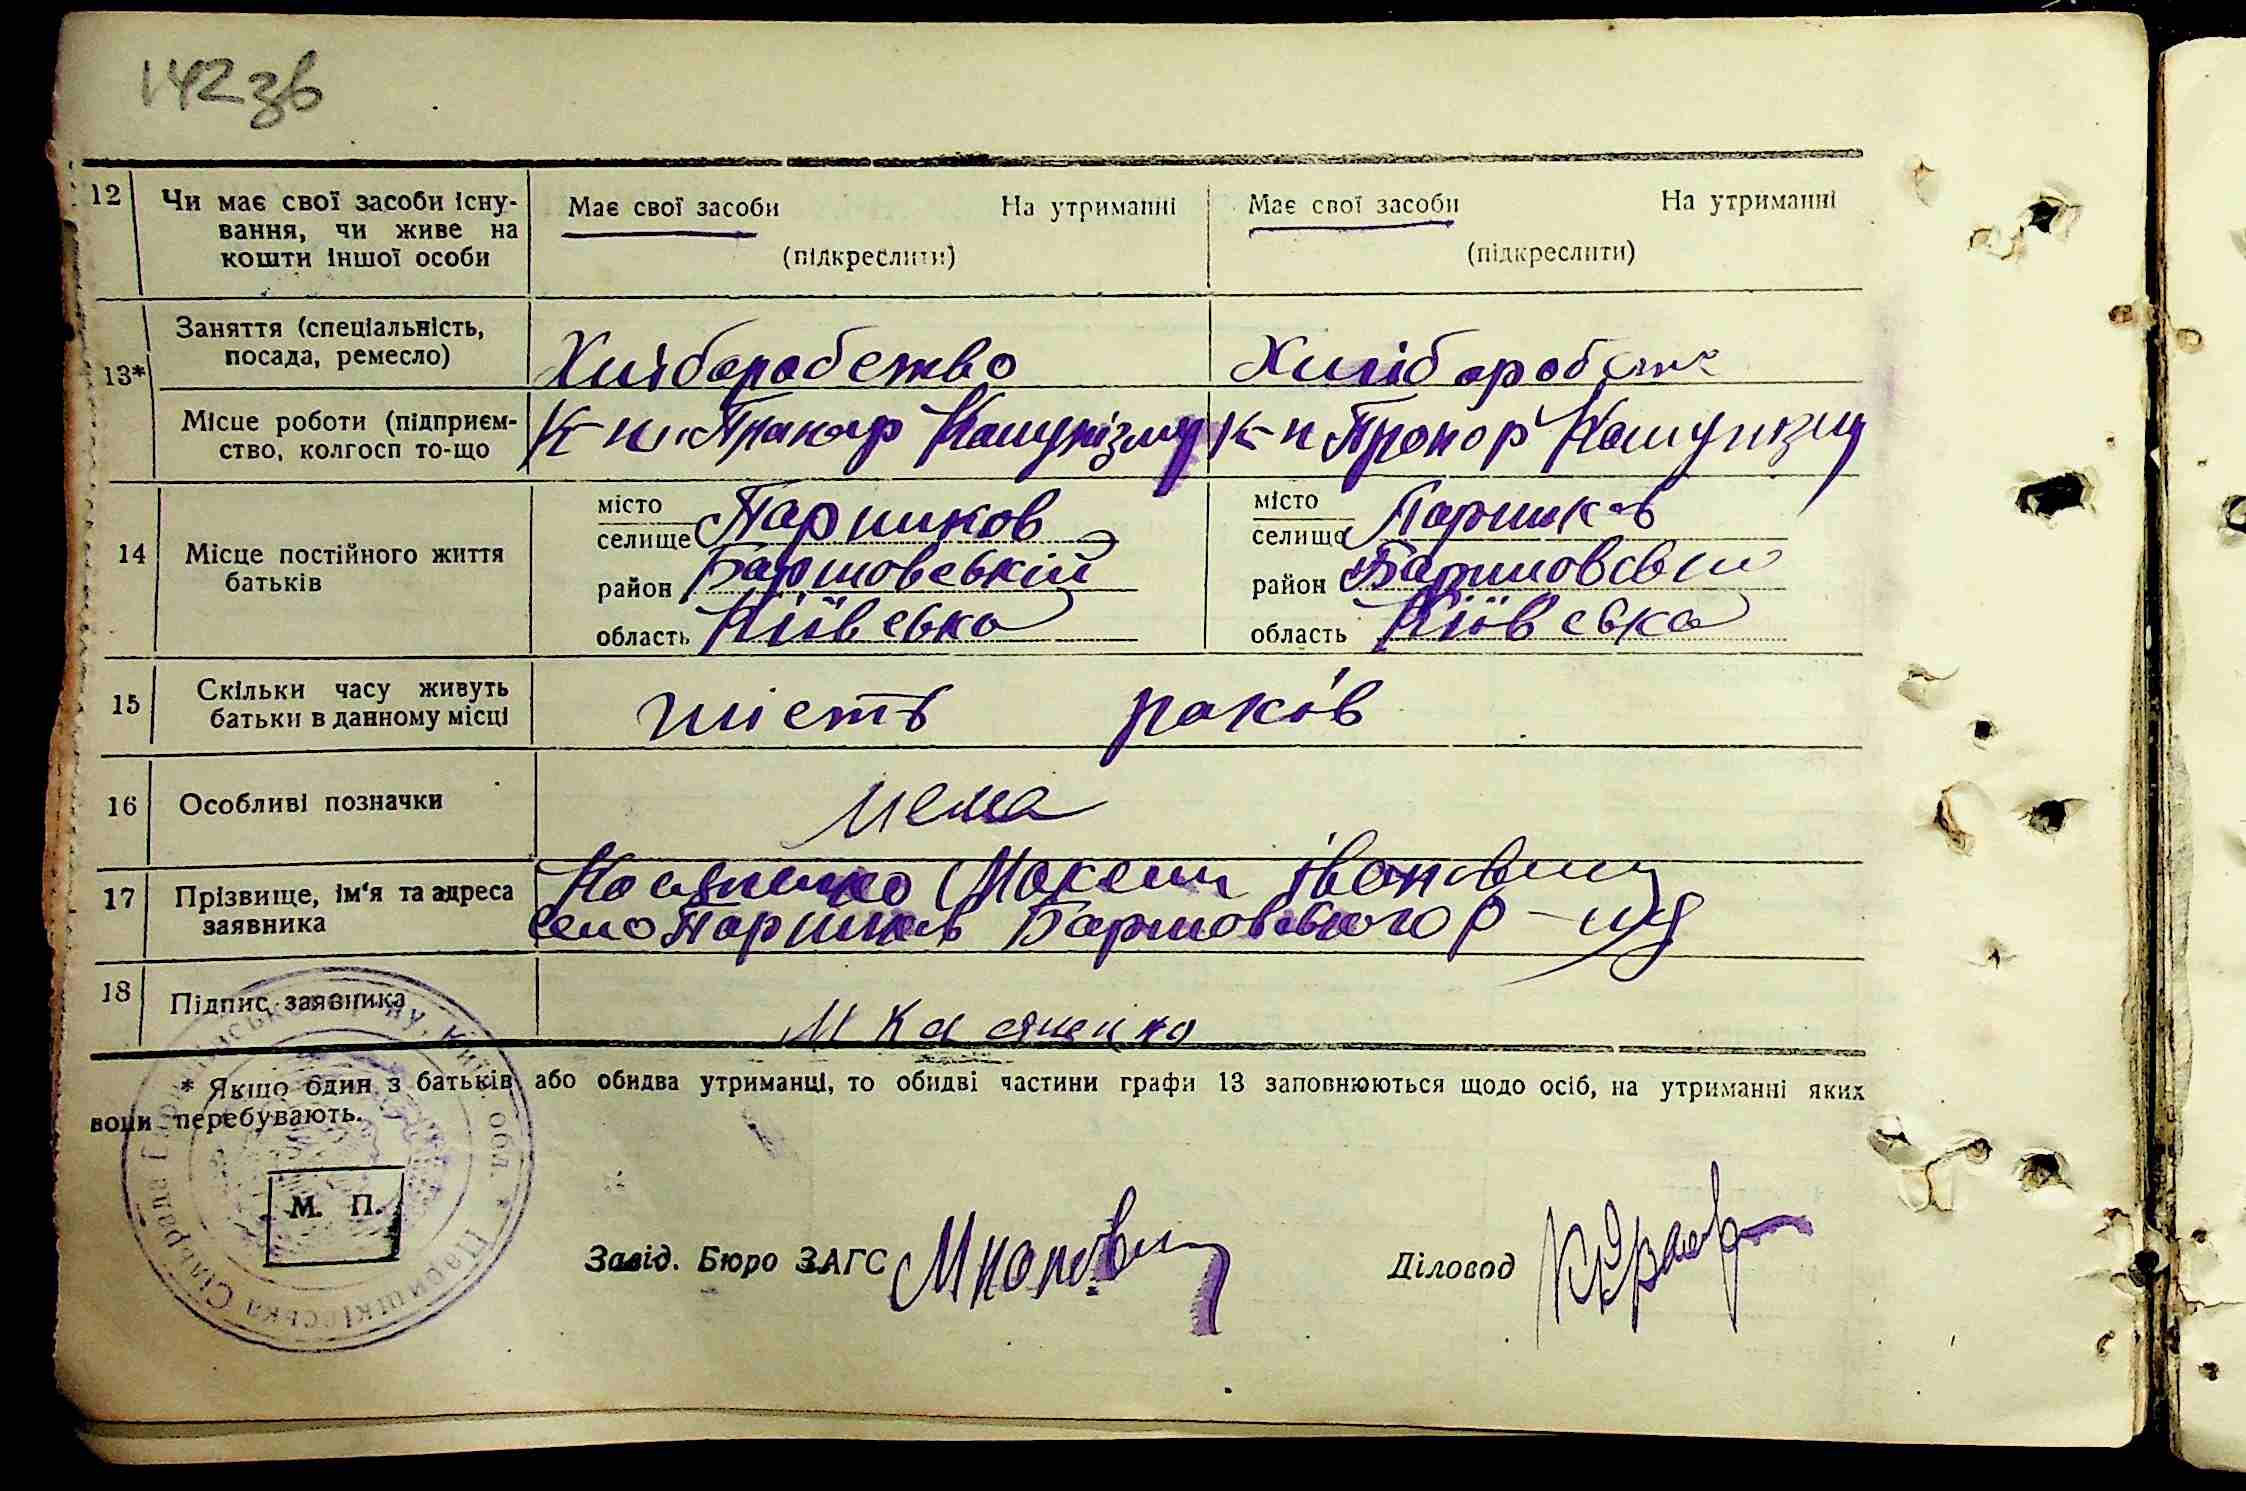 142зв
12 Чи має свої засоби існу- Має свої засоби На утриманні Має свої засоби На утриманні
вання, чи живе на
кошти іншої особи (підкреслити) (підкреслити)
Заняття (спеціальність,
посада, ремесло) Хліборобство Хлібороб
13*
Місце роботи (підприєм- К-п Прапор Комунізму К-п Прапор Комунізму
ство, колгосп то-що
14 Місце постійного життя батьків
місто
селище Паришков
район Баришовській
область Київська
місто
селище Паришков
район Баришовській
область Київська
15 Скільки часу живуть
батьки в данному місці шість років
16 Особливі позначки нема
17 Прізвище, ім'я та адреса Касяненко Максим Іванович
заявника село Паришков Баришовського р-ну
18 Підпис заявника М Касяненко
* Якщо один з батьків, або обидва утриманці, то обидві частини графи 13 заповнюються щодо осіб, на утриманні яких
вони перебувають.
М. П.
Паришківська Сільрада
Київ. обл.
Завід. Бюро ЗАГС Діловод